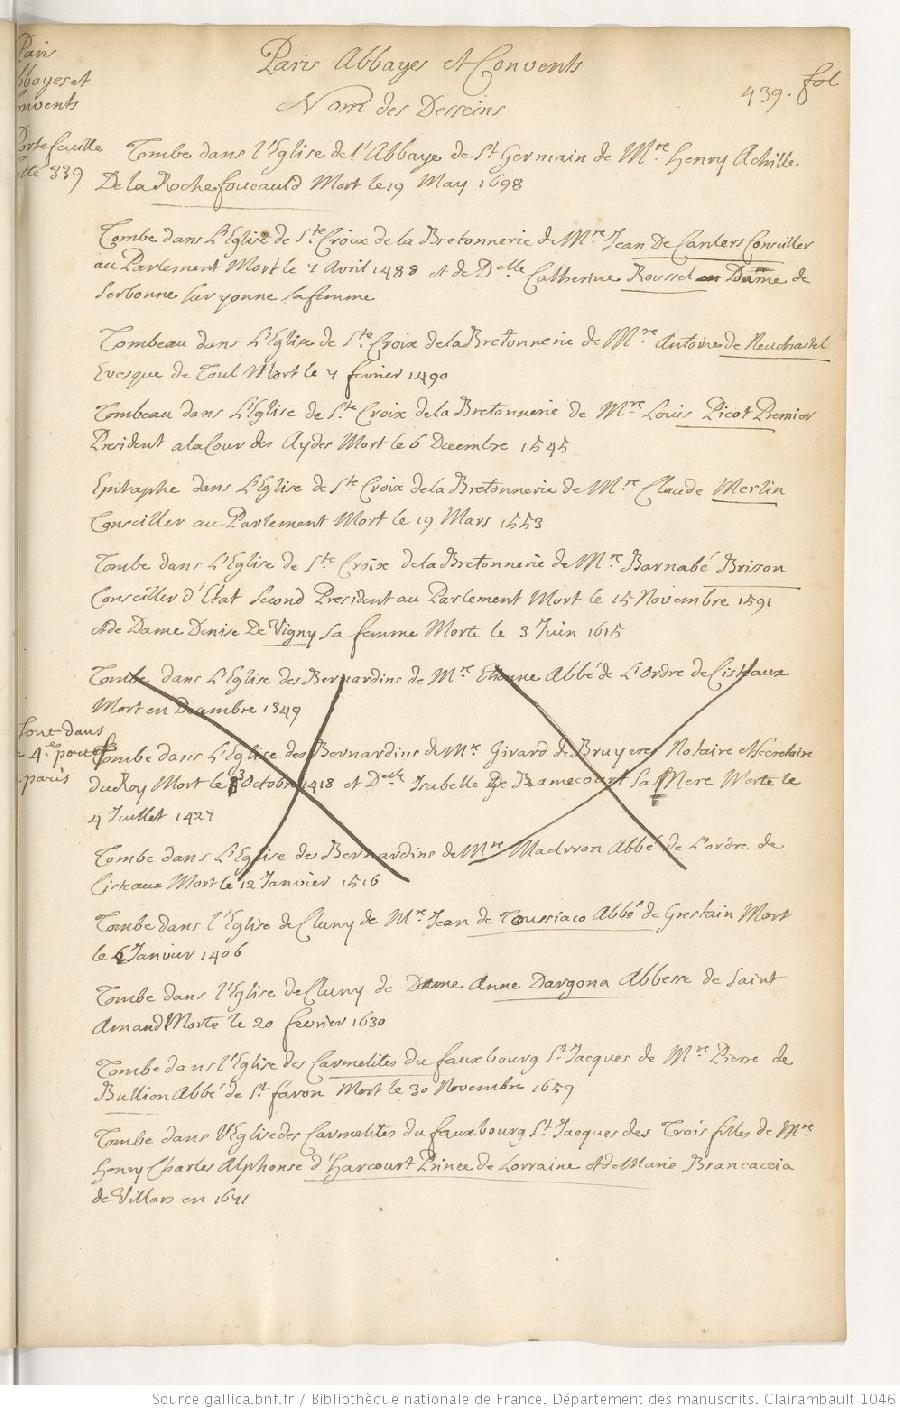 Paris Abbayes et Convents
Nom des Desseins
439. fol
Paris
bbayes et
onvents
Portefeuille
339
Tombe dans l'Eglise de l'Abbaye de St Germain de Mre Henry Achille
De la Rochefoucauld Mort le 19 May 1698
Tombe dans L'Eglise de Ste Croix de la Bretonnerie de Mre Jean De Canlers Conseiller
au Parlement Mort le 4 Avril 1488 et de Delle Catherine Roussel Dame de
Serbonne sur yonne sa femme
Tombeau dans L'Eglise de Ste Croix de la Bretonnerie de Mre Antoine de Neuchastel
Evesque de Toul Mort le 4 fevrier 1490
Tombeau dans L'Eglise de Ste Croix de la Bretonnerie de Mre Louis Picot Premier
President a la Cour des Aydes Mort le 6 Decembre 1545
Epitaphe dans L'Eglise de Ste Croix de la Bretonnerie de Mre Claude Merlin
Conseiller au Parlement Mort le 19 Mars 1553
Tombe dans L'Eglise de Ste Croix de la Bretonnerie de Mre Barnabé Brison
Conseiller d'Etat Second President au Parlement Mort le 15 Novembre 1591
et de Dame Denise De Vigny sa femme Morte le 3 Juin 1615
Tombe dans L'Eglise des Bernardins de Mre Etienne Abbé de L'Ordre de Cisteaux
Mort en Decembre 1349
Sont dans
4e porte
paris
Tombe dans L'Eglise des Bernardins de Mre Girard de Bruyeres Notaire et Secretaire
du Roy Mort le Octobre 1418 et Delle Isabelle De Ramecourt sa Mere Morte le
4 Juillet 1427
Tombe dans L'Eglise des Bernardins de Mre Abbé de L'ordre de
Cisteaux Mort le 12 Janvier 1516
Tombe dans l'Eglise de Cluny de Mre Jean de Toussiaco Abbé de Grestain Mort
le 6 Janvier 1406
Tombe dans l'Eglise de Cluny de Dame Anne Dargona Abbesse de Saint
Amand Morte le 20 fevrier 1630
Tombe dans l'Eglise des Carmelites du fauxbourg St Jacques de Mre Pierre de
Bullion Abbé de St faron Mort le 30 Novembre 1659
Tombe dans l'Eglise des Carmelites du fauxbourg St Jacques des Trois filles de Mre
Henry Charles Alphonse d'Harcourt Prince de Lorraine et de Marie Brancaccia
de Villars en 1641
Source gallica.bnf.fr / Bibliothèque nationale de France. Département des manuscrits. Clairambault 1046